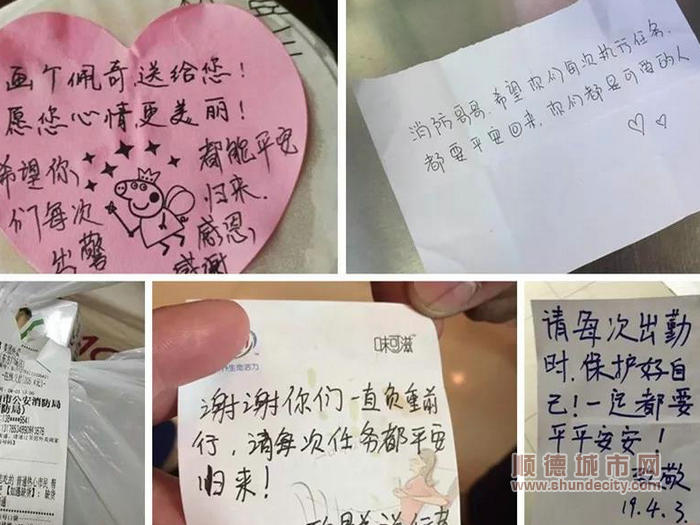 画个佩奇送给您！
愿您心情更美丽！
希望你
们每次
出警
都能平安
归来.
感恩,
感谢
消防哥哥,希望你们每次执行任务,
都要平安回来,你们都是可爱的人
♡♡
市公安消防局
防局)
味可滋
养生命活力
谢谢你们一直负重前
行,请每次任务都平安
归来！
请每次出勤
时,保护好自
己！一定都要
平平安安！
致敬
19.4.3
顺德城市网
www.shundecity.com